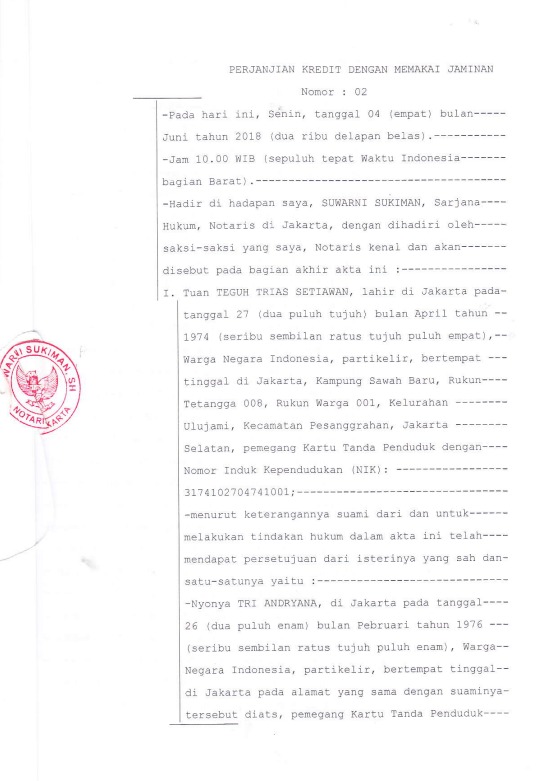 PERJANJIAN KREDIT DENGAN MEMAKAI JAMINAN
Nomor : 02
-Pada hari ini, Senin, tanggal 04 (empat) bulan-----
Juni tahun 2018 (dua ribu delapan belas).-----------
-Jam 10.00 WIB (sepuluh tepat Waktu Indonesia-------
bagian Barat).--------------------------------------
-Hadir di hadapan saya, SUWARNI SUKIMAN, Sarjana----
Hukum, Notaris di Jakarta, dengan dihadiri oleh-----
saksi-saksi yang saya, Notaris kenal dan akan-------
disebut pada bagian akhir akta ini :----------------
I. Tuan TEGUH TRIAS SETIAWAN, lahir di Jakarta pada-
tanggal 27 (dua puluh tujuh) bulan April tahun --
1974 (seribu sembilan ratus tujuh puluh empat),--
Warga Negara Indonesia, partikelir, bertempat ---
tinggal di Jakarta, Kampung Sawah Baru, Rukun----
Tetangga 008, Rukun Warga 001, Kelurahan --------
Ulujami, Kecamatan Pesanggrahan, Jakarta --------
Selatan, pemegang Kartu Tanda Penduduk dengan----
Nomor Induk Kependudukan (NIK): -----------------
3174102704741001;--------------------------------
-menurut keterangannya suami dari dan untuk------
melakukan tindakan hukum dalam akta ini telah----
mendapat persetujuan dari isterinya yang sah dan-
satu-satunya yaitu :-----------------------------
-Nyonya TRI ANDRYANA, di Jakarta pada tanggal----
26 (dua puluh enam) bulan Pebruari tahun 1976 ---
(seribu sembilan ratus tujuh puluh enam), Warga--
Negara Indonesia, partikelir, bertempat tinggal--
di Jakarta pada alamat yang sama dengan suaminya-
tersebut diats, pemegang Kartu Tanda Penduduk----
WARNI SUKIMAN, SH
NOTARIS
KARTA